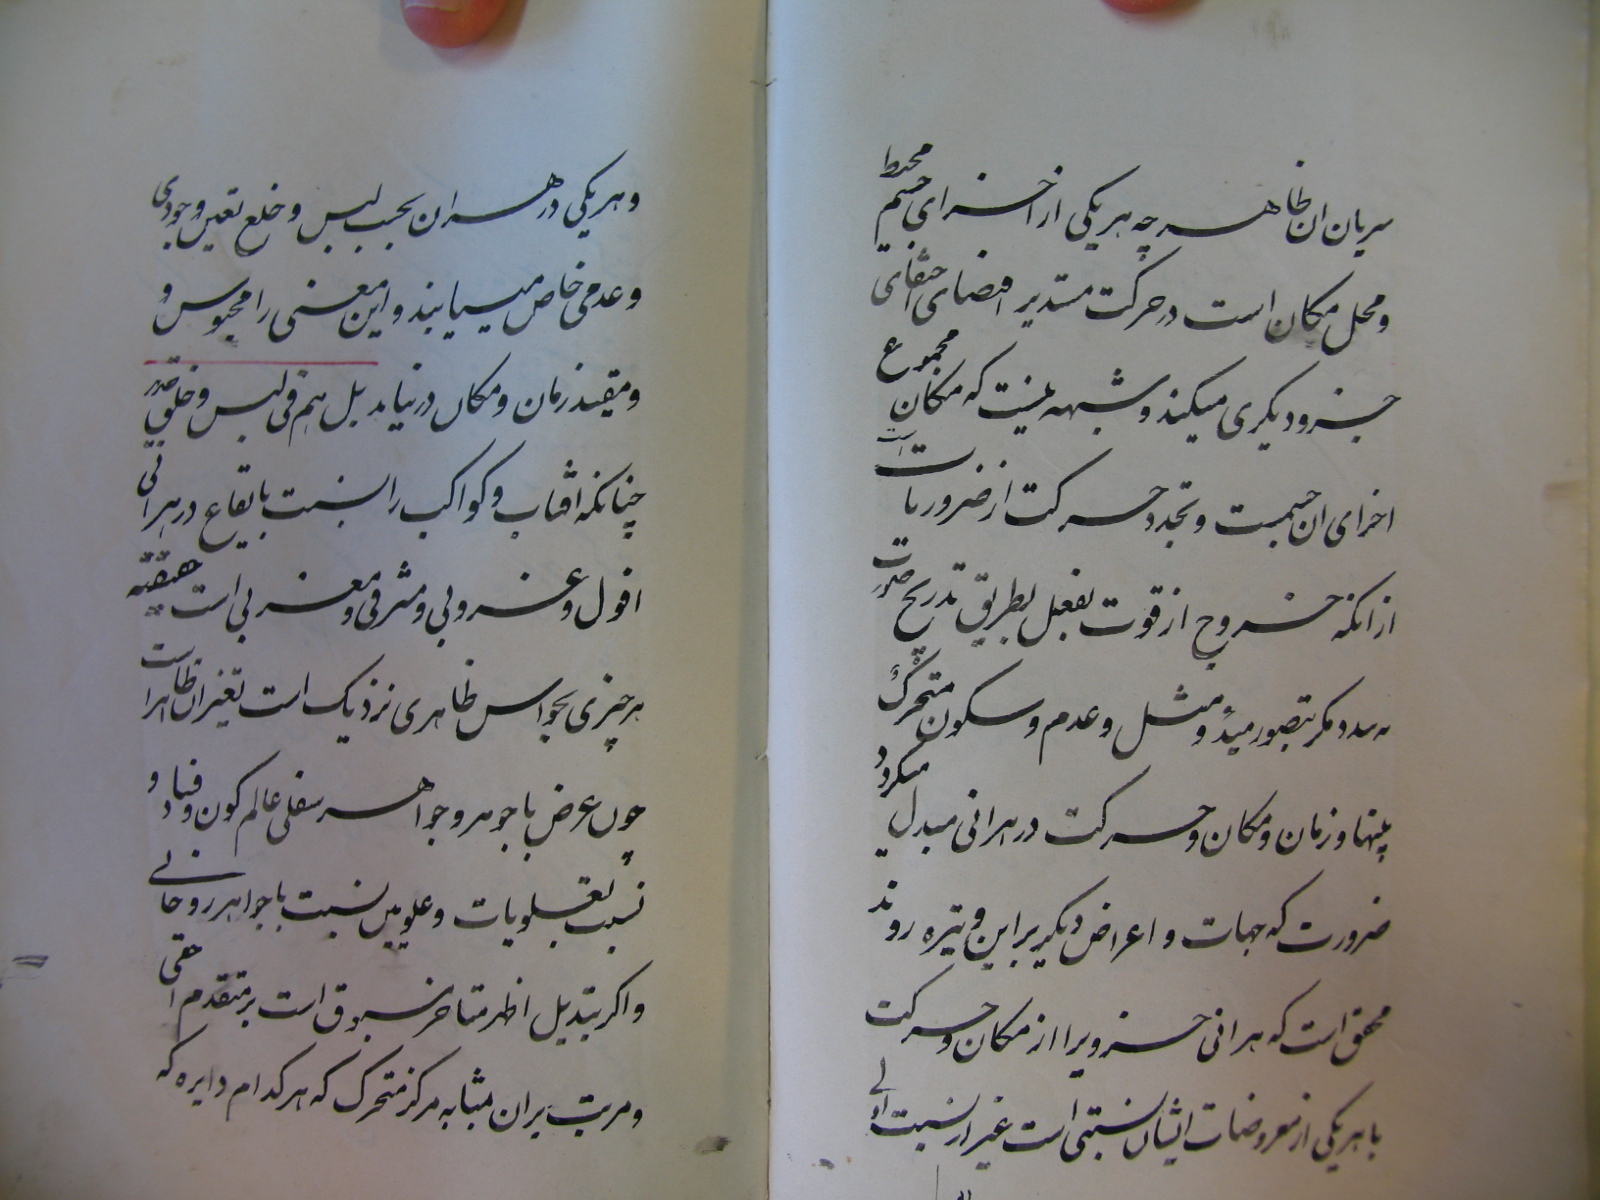 سریان ان ظاهر چه هر یکی از اجزای جسم محیط
و محل مکان است در حرکت مستدیر اقتضای
جزو دیگری میکند و شبهه نیست که مکان مجموع
اجزای ان جسمست و تجدد حرکت از ضروریات است
از انکه خروج از قوت بفعل بطریق تدریج صورت
مکر بتصور و مثل و عدم و سکون متحرک
و زمان و مکان و حرکت در هر انی مبدل میکردد
ضرورت که جهات و اعراض دیکر بر این وتیره روند
محقق است که هر انی جزویرا از مکان و حرکت
با هر یکی از معروضات ایشان نسبتی است غیر از نسبت اولی
و هر یکی در هر ان بحسب لبس و خلع تعین وجودی
و عدمی خاص مییابند و این معنی را محبوس و
و مقید زمان و مکان در نیابد بل هم فی لبس و خلق
چنانکه افتاب و کواکب را نسبت بابقاع در هر انی
افول و غروبی و مشرقی و مغربی است حقیقیه
هر چیزی بحواس ظاهری نزدیک است تغیر ان ظاهرا است
چون عرض با جوهر و جواهر سفلی عالم کون و فساد و
نسبت بعلویات و علویین نسبت با جواهر روحانی
و اکر تبدیل اظهر متاخر مسبوق است بر متقدم اخفی
و مرتب بران بمثابه مرکز متحرک که هر کدام دایره که